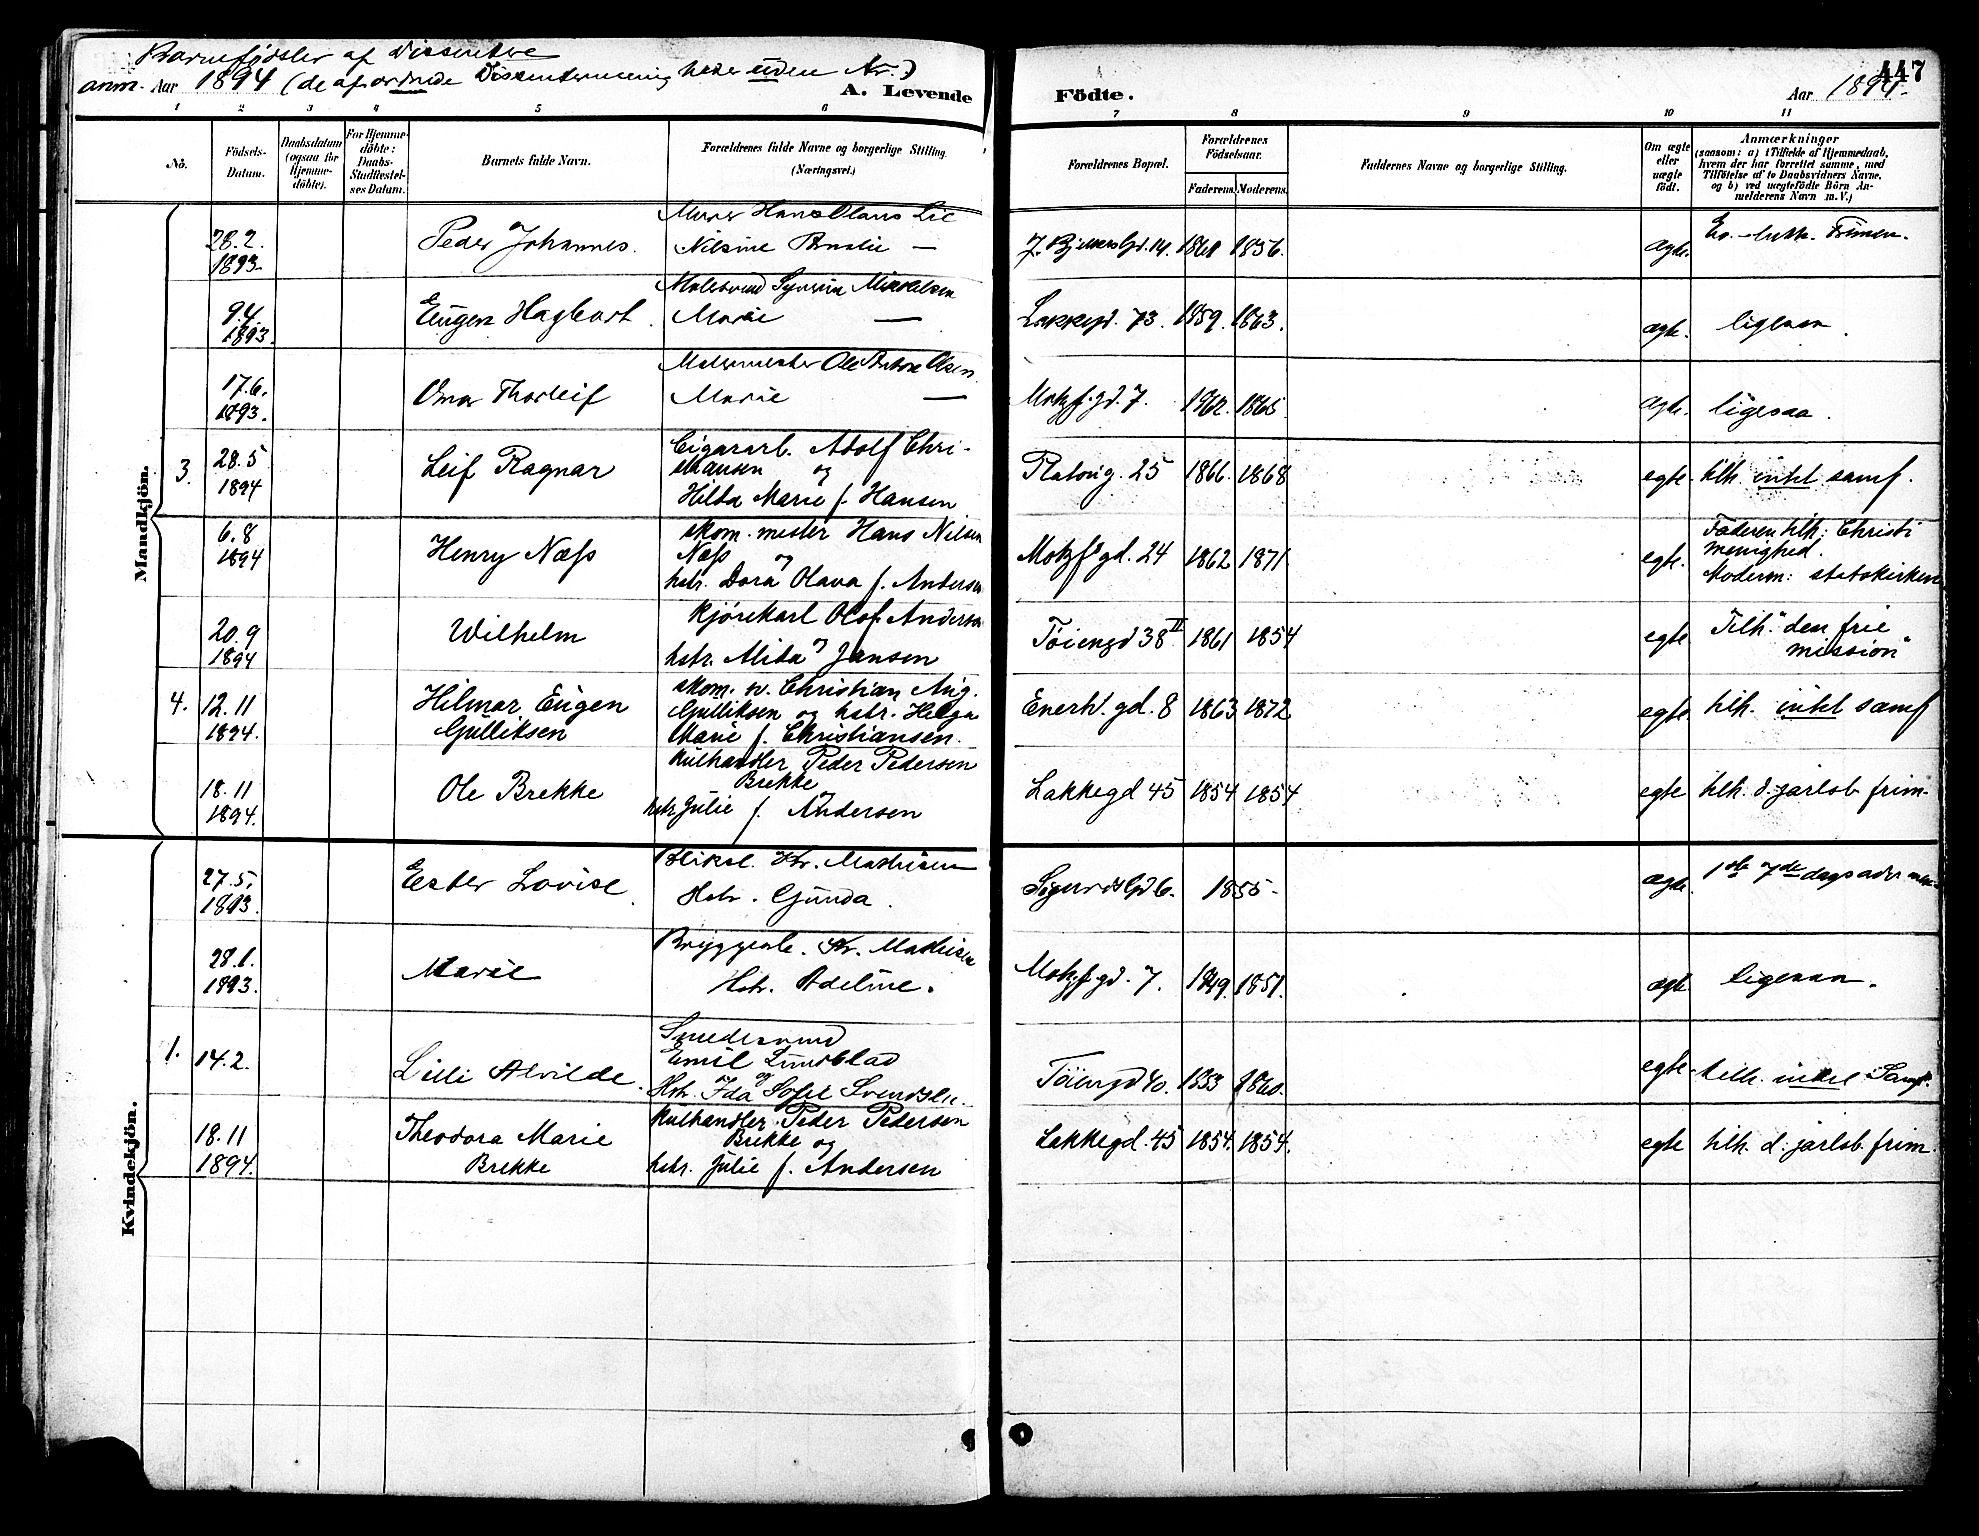 Barnefødsler af Dissentere
anm. Aar 1894 (de af ordnede Dissentermenigheder uden Nr.)
A. Levende
Födte.
Aar 1894.
447
1 2 3 4 5 6 7 8 9 10 11
No.
Födsels-Datum.
Daabsdatum (ogsaa for Hjemmedöbte).
For Hjemmedöbte: Daabs-Stadfestelses Datum.
Barnets fulde Navn.
Forældrenes fulde Navne og borgerlige Stilling. (Næringsvei.)
Forældrenes Bopæl.
Forældrenes Födselsaar.
Faderens. Moderens.
Faddernes Navne og borgerlige Stilling.
Om ægte eller uægte födt.
Anmærkninger
(saasom: a) i Tilfælde af Hjemmedaab, hvem der har forrettet samme, med Tilföielse af to Daabsvidners Navne, og b) ved uegtefödte Börn Anmelderens Navn m. V.)
Mandkjön.
28.2. 1893. Peder Johannes. Murer Hans Olaus Lie
Nilsine Amalie —
14. 1861 1856. ægte. Ev.-luth. Frimen.
9.4. 1893. Eugen Hagbart. Malersvend Mikkelsen
Marie —
Lakkegd. 73. 1859. 1863. ægte. ligesaa.
17.6. 1893. Omar Thorleif Malermester Ole Anton Olsen
Marie —
Motzf.gd. 7. 1862. 1865 ægte. ligesaa.
3. 28.5 1894 Leif Ragnar Cigararb. Adolf Chri-
stiansen og
Hilda Marie f. Hansen
Platoug. 25 1866. 1868 egte. tilh. intet samf.
6.8 1894 Henry Næss skom. mester Hans Nilsen
Næss og
hstr. Dora Olava f. Andersen
Motzf gd. 24 1862 1871. egte. Faderen tilh: Christi
menighed.
Moderen: statskirken
20.9 1894 Wilhelm kjørekarl Olof Anderson
og
hstr. Alida Jansen
Tøiengd 38 II 1861 1854 egte Tilh. "den frie
mission"
4. 12.11 1894. Hilmar Eugen
Gulliksen
skom. sv. Christian Aug.
Gulliksen og hstr. Helga
Marie f. Christiansen.
Enerh. gd. 8 1863 1872 egte tilh. intet samf
18.11 1894. Ole Brekke kulhandler Peder Pedersen
Brekke
og
hstr Julie f. Andersen
Lakkegd 45 1854 1854 egte tilh. d. jarlsb. frim.
Kvindekjön.
27.5. 1893. Ester Lovise. Bliksl. Kr. Mathisen
Hstr. Gunda.
Sigurdsgd 6. 1855 - ægte. 1ste 7de dags
28.1. 1893. Marie Bryggearb. Kr. Mathisen
Hstr. Adeline.
Motzf.gd. 7. 1849. 1851. ægte ligesaa.
1. 14.2. Lilli Alvilde. Smedesvend
Emil Lundblad
og
Hstr. Ida Sofie Svendsen.
Tøiengd 40. 1853 1860. egte. tilh. intet Samf.
18.11 1894. Theodora Marie
Brekke
kulhandler Peder Pedersen
Brekke og
hstr. Julie f. Andersen
Lakkegd. 45 1854. 1854. egte tilh. d. jarlsb. frim.